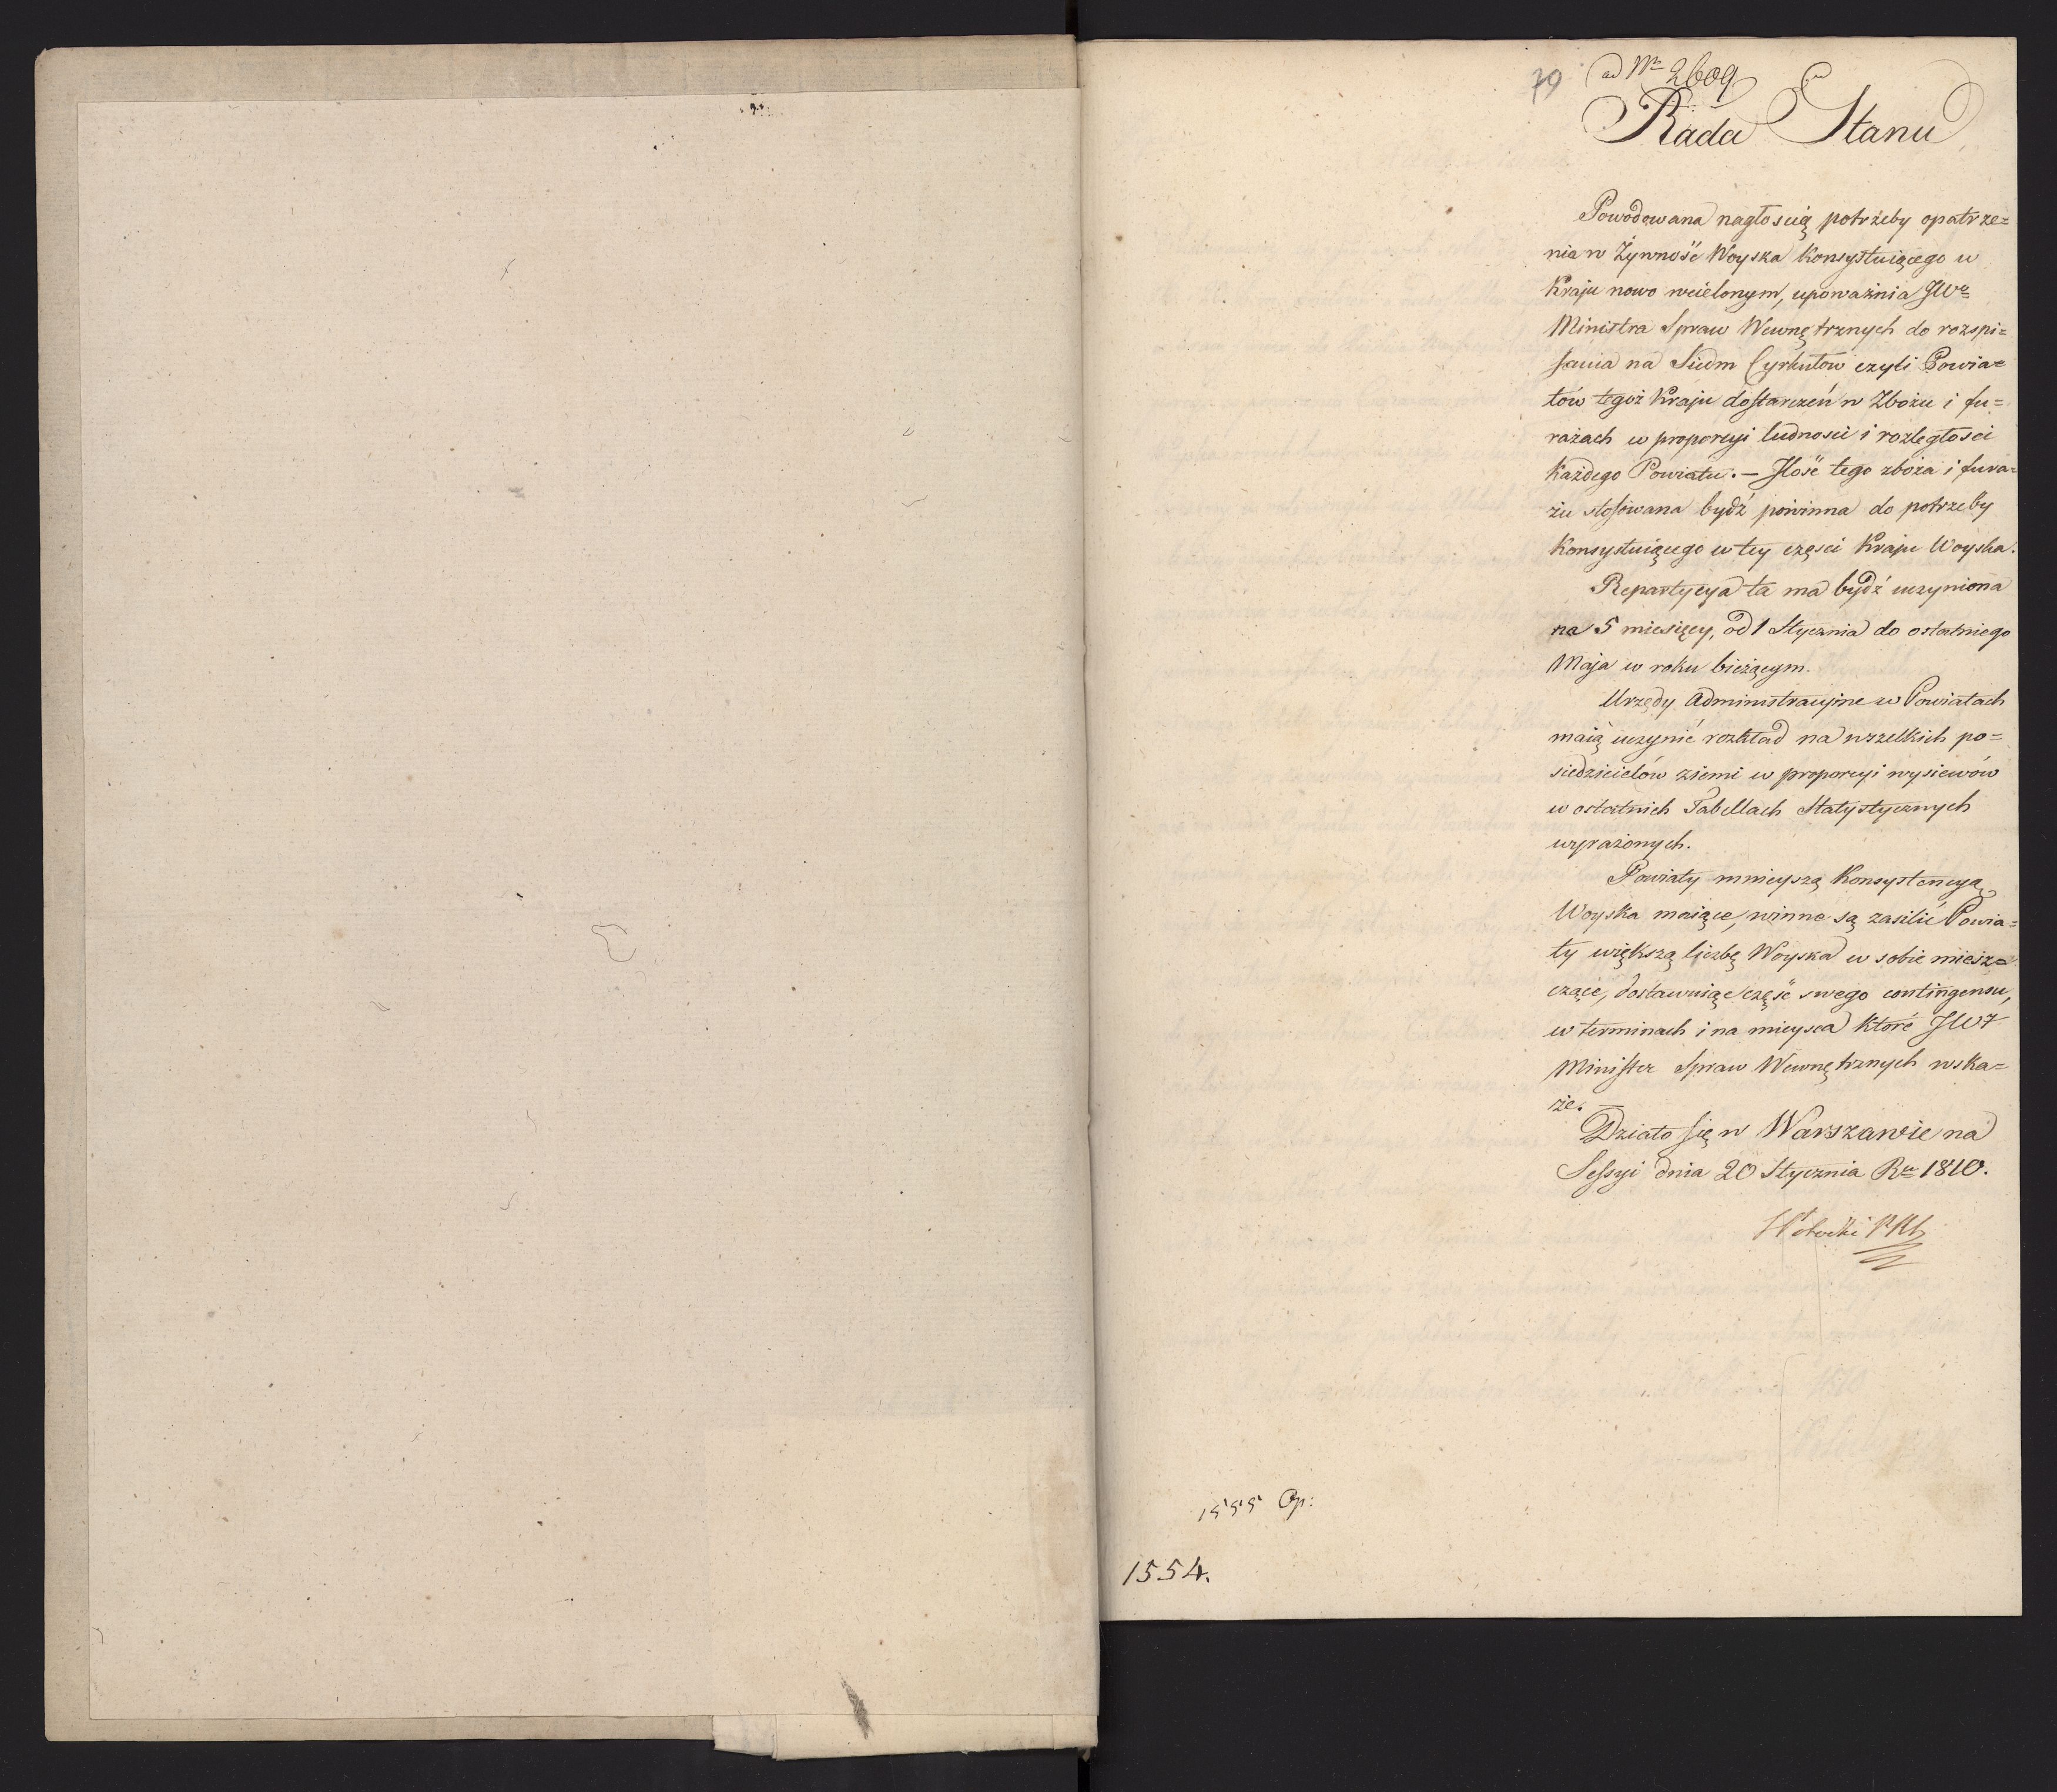 79 ad Nr 2609
Rada Stanu
Powodowana nagłoscią potrzeby opatrze=
nia w Żywność Woyska konsystuiącego w
kraju nowo wcielonym, upoważnia JWo
Ministra Spraw Wewnętrznych do rozspi=
sania na Siedm Cyrkułow czyli Powia=
tów tegoż kraju dostarczeń w Zbożu i fu=
rażach w proporcyi ludnosci i rozległosci
każdego Powiatu. — Jlość tego zboża i fura=
żu stosowana bydź powinna do potrzeby
konsystuiącego w tey częsci kraju Woyska.
Repartycya ta ma bydź uczyniona
na 5 miesięcy, od 1 Stycznia do ostatniego
Maja w roku bieżącym.
Urzędy Administracyjne w Powiatach
maią uczynić rozkład na wszelkich po=
siedzicielów ziemi w proporcyi wysiewów
w ostatnich Tabellach Statystycznych
wyrażonych.
Powiaty mnieyszą konsystencyą
Woyska maiące, winne są zasilić Powia=
ty większą liczbę Woyska w sobie miesz=
czące, dostawuiąc część swego contingensu,
w terminach i na mieysca które JW
Minister Spraw Wewnętrznych wska=
że.
Działo się w Warszawie na
Sessyi dnia 20 Stycznia Ru 1810.
1555 Op:
1554.